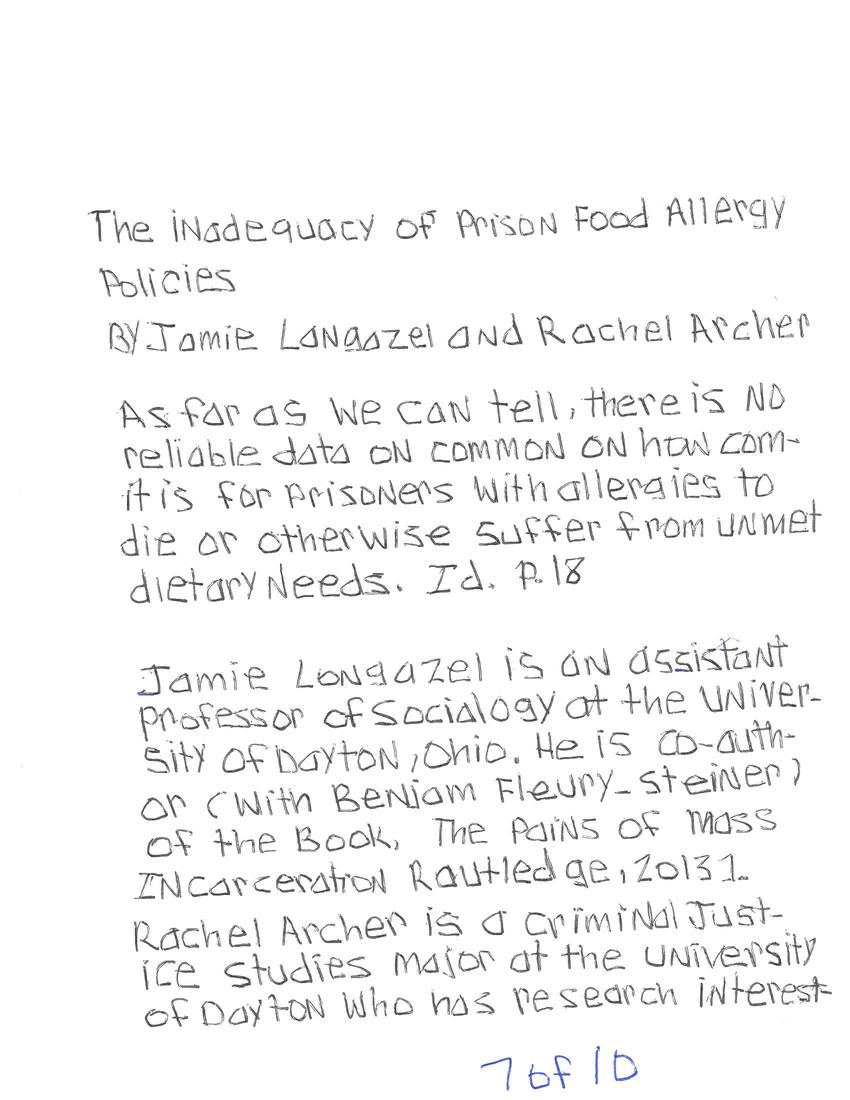 The inadequacy of Prison Food Allergy
Policies
By Jamie Longazel and Rachel Archer
As far as we can tell, there is no
reliable data on common on how com-
it is for prisoners with allergies to
die or otherwise suffer from unmet
dietary needs. Id. P.18
Jamie Longazel is an assistant
professor of Sociology at the univer-
sity of Dayton, Ohio. He is co-auth-
or (with Beniam Fleury-steiner)
of the Book, The Pains of mass
Incarceration Routledge, 20131.
Rachel Archer is a criminal Just-
ice studies major at the university
of Dayton who has research interest-
7 of 10